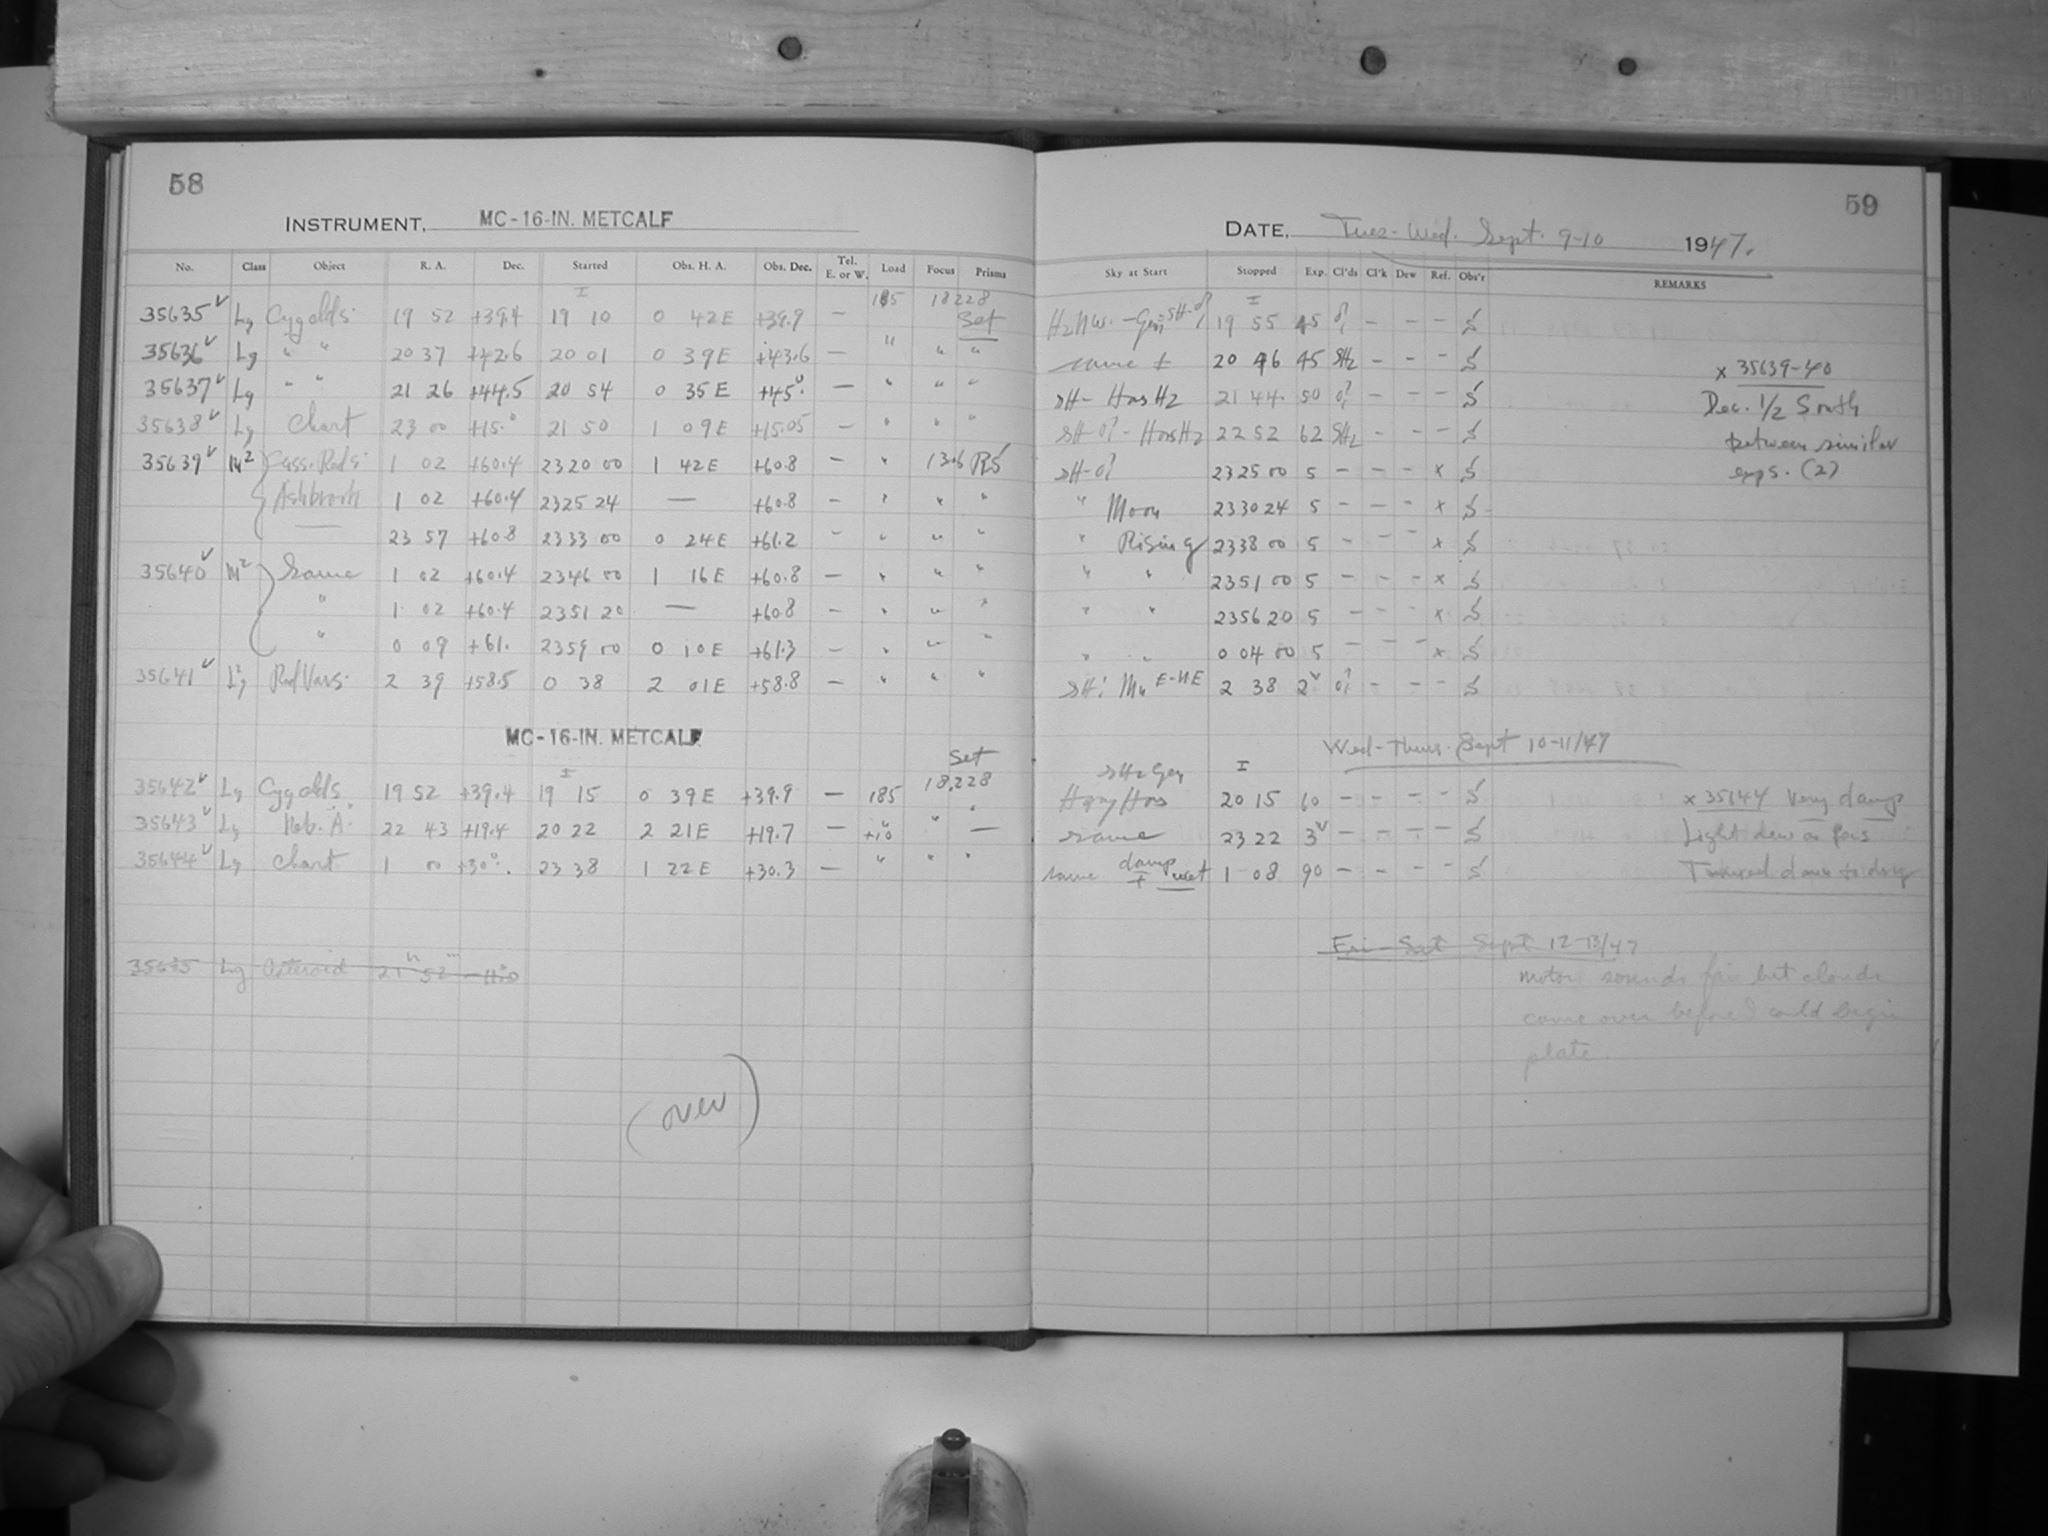 58
INSTRUMENT, MC-16-IN. METCALF
No. Class Object R. A. Dec. Started Obs. H. A. Obs. Dec. Tel. E. or W. Load Focus Prisms
35635 Lg 19 52 +39.4 19 10 0 42E +39.9 — 185 18228 Set
35636 Lg " " 20 37 +42.6 20 01 0 39E +43.6 — " " "
35637 Lg " " 21 26 +44.5 20 54 0 35E +45°. — " " "
35638 Lg Chart 23 00 +15.° 21 50 1 09E +15.05 — " " "
35639 M² Cass. Reds 1 02 +60.4 23 20 00 1 42E +60.8 — " 13.6
Ashbrook 1 02 +60.4 23 25 24 — +60.8 — " " "
23 57 +60.8 23 33 00 0 24E +61.2 — " " "
35640 M² Same 1 02 +60.4 23 46 00 1 16E +60.8 — " " "
" 1 02 +60.4 23 51 20 — +60.8 — " " "
" 0 09 +61. 23 59 00 0 10E +61.3 — " " "
35641 Red Vars. 2 39 +58.5 0 38 2 01E +58.8 — " " "
MC-16-IN. METCALF
Set
35642 Lg 19 52 +39.4 19 15 0 39E +39.9 — 185 18,228
35643 Lg Neb. A. 22 43 +19.4 20 22 2 21E +19.7 — " +10 " —
35644 Lg Chart 1 00 +30°. 23 38 1 22E +30.3 — " " "
35645 Lg Asteroid 21ʰ 52ᵐ
(over)
59
DATE, Tues-Wed. Sept. 9-10 1947.
Sky at Start Stopped Exp. Cl'ds Cl'k Dew Ref. Obs'r REMARKS
19 55 45 — — —
same ± 20 46 45 — — —
SH- 21 44 50 — — —
22 52 62 — — —
23 25 00 5 — — — x
" Moon 23 30 24 5 — — — x
" Rising 23 38 00 5 — — — x
" " 23 51 00 5 — — — x
" " 23 56 20 5 — — — x
" " 0 04 00 5 — — — x
E-NE 2 38 2 — — —
x 35639-40
Dec. 1/2 South
between similar
exps. (2)
Wed-Thurs. Sept 10-11/47
20 15 60 — — — —
same 23 22 3 — — — —
same damp + wet 1 08 90 — — — —
x 35644 Very damp
Light dew on
Fri-Sat Sept 12-13/47
motor sounds fair but clouds
came over before I could begin
plate.